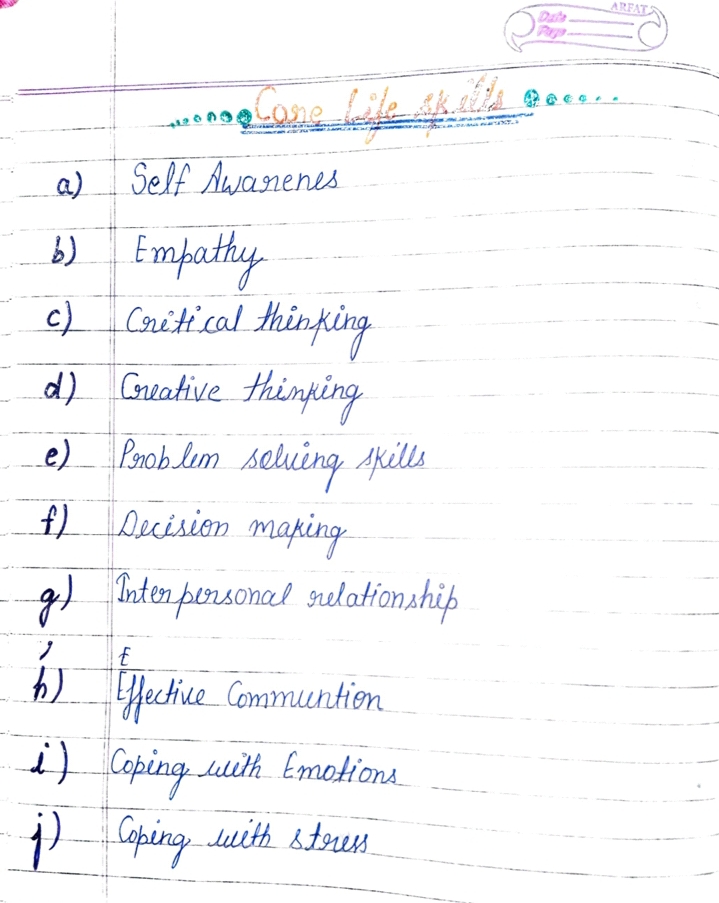 ARFAT
Date
Page
Core Life skills
a) Self Awarenes
b) Empathy
c) Critical thinking
d) Creative thinking
e) Problem solving skills
f) Decision making
g) Interpersonal relationship
E
h) Effective Communtion
i) Coping with Emotions
j) Coping with stress